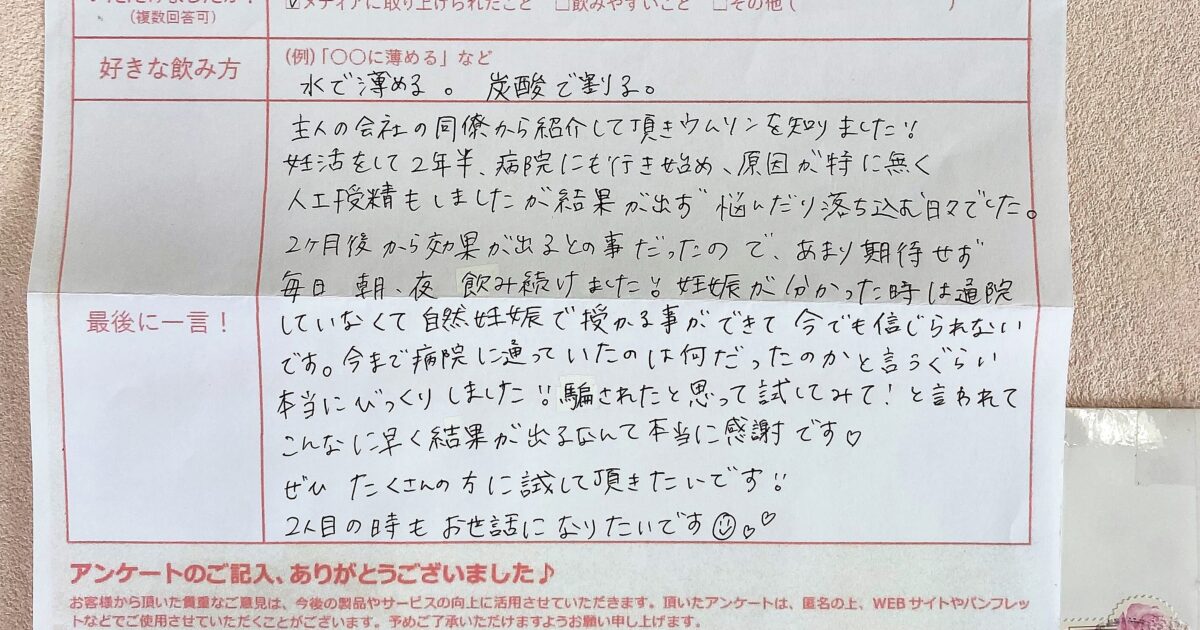 (複数回答可)
☑メディアに取り上げられたこと □飲みやすいこと □その他( )
好きな飲み方
(例)「〇〇に薄める」など
水で薄める。 炭酸で割る。
主人の会社の同僚から紹介して頂きウムリンを知りました!!
妊活をして2年半、病院にも行き始め、原因が特に無く
人工授精もしましたが結果が出ず 悩んだり落ち込む日々でした。
2ヶ月後から効果が出るとの事だったので、あまり期待せず
毎日 朝、夜 飲み続けました!! 妊娠が分かった時は通院
最後に一言!
していなくて自然妊娠で授かる事ができて 今でも信じられない
です。今まで病院に通っていたのは何だったのかと言うぐらい
本当にびっくりしました!! 騙されたと思って試してみて!と言われて
こんなに早く結果が出るなんて本当に感謝です♡
ぜひ たくさんの方に試して頂きたいです!!
2人目の時も お世話になりたいです☺♡♡
アンケートのご記入、ありがとうございました♪
お客様から頂いた貴重なご意見は、今後の製品やサービスの向上に活用させていただきます。頂いたアンケートは、匿名の上、WEBサイトやパンフレッ
トなどでご使用させていただくことがございます。予めご了承いただけますようお願い申し上げます。